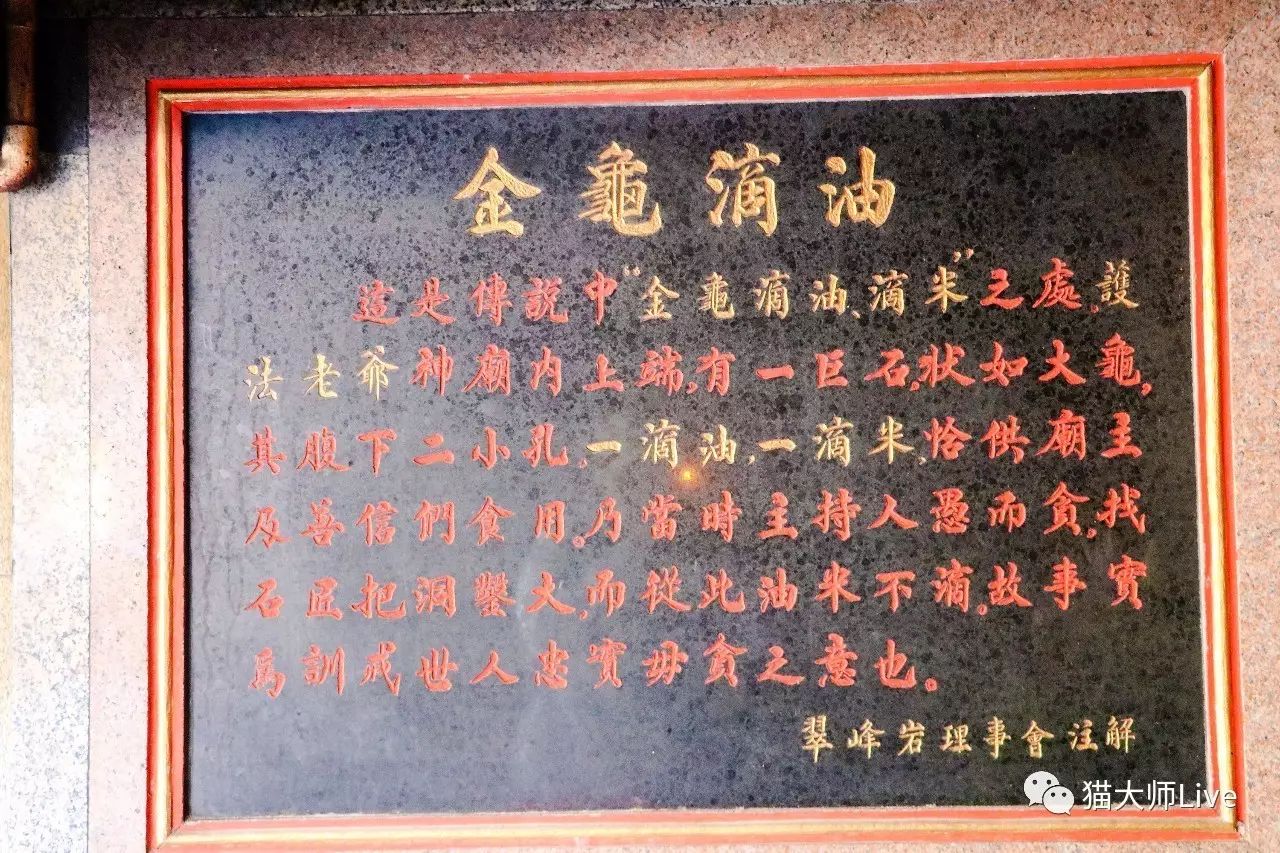 金龜滴油
這是傳説中“金龜滴油、滴米”之處。護
法老爺神廟内上端，有一巨石，狀如大龜，
其腹下二小孔，一滴油，一滴米，恰供廟主
及善信們食用。乃當時主持人愚而貪。找
石匠把洞鑿大，而從此油米不滴。故事實
爲訓戒世人忠實毋貪之意也。
翠峰岩理事會注解
猫大师Live